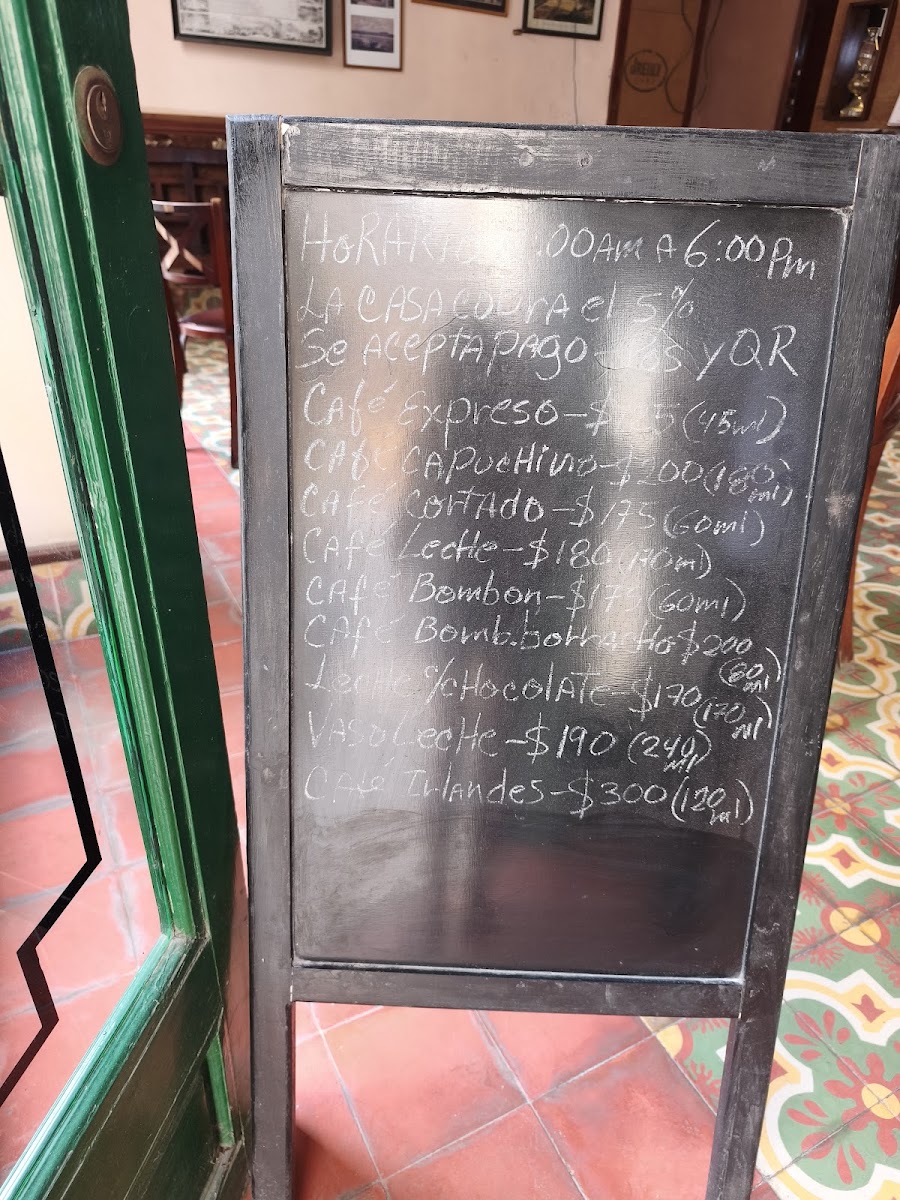 HORARIO :00AM A 6:00Pm
LA CASA COBRA el 5%
Se ACEPTA PAgo y QR
CAfé Expreso-$ (45ml)
CAfé CAPUCHiNo-$200(180ml)
CAfé CortAdo-$175(60ml)
CAfé LecHe-$180(70ml)
CAfé Bombon-$175(60ml)
CAfé Bomb.borrACHo$200
(60ml)
LecHe c/cHocolATe-$170
(170ml)
VASo LecHe-$190 (240ml)
CAfé IrlAndes-$300(120ml)